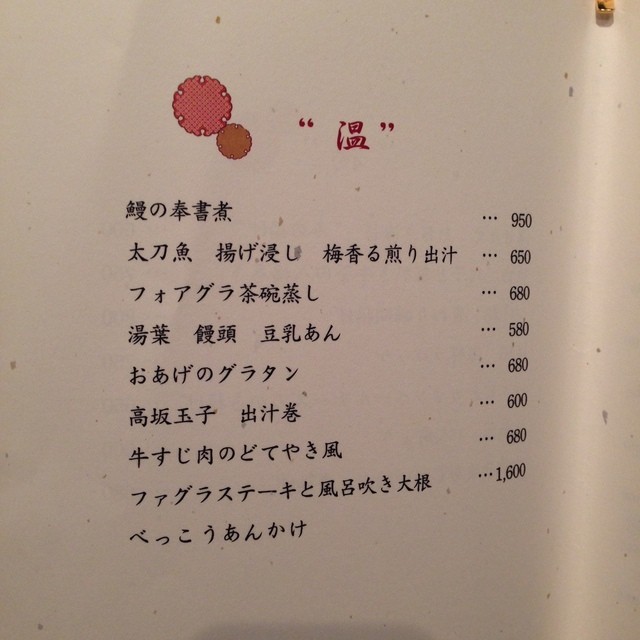 “ 温 ”
鰻の奉書煮 … 950
太刀魚 揚げ浸し 梅香る煎り出汁 … 650
フォアグラ茶碗蒸し … 680
湯葉 饅頭 豆乳あん … 580
おあげのグラタン … 680
高坂玉子 出汁巻 … 600
牛すじ肉のどてやき風 … 680
ファグラステーキと風呂吹き大根 …1,600
べっこうあんかけ